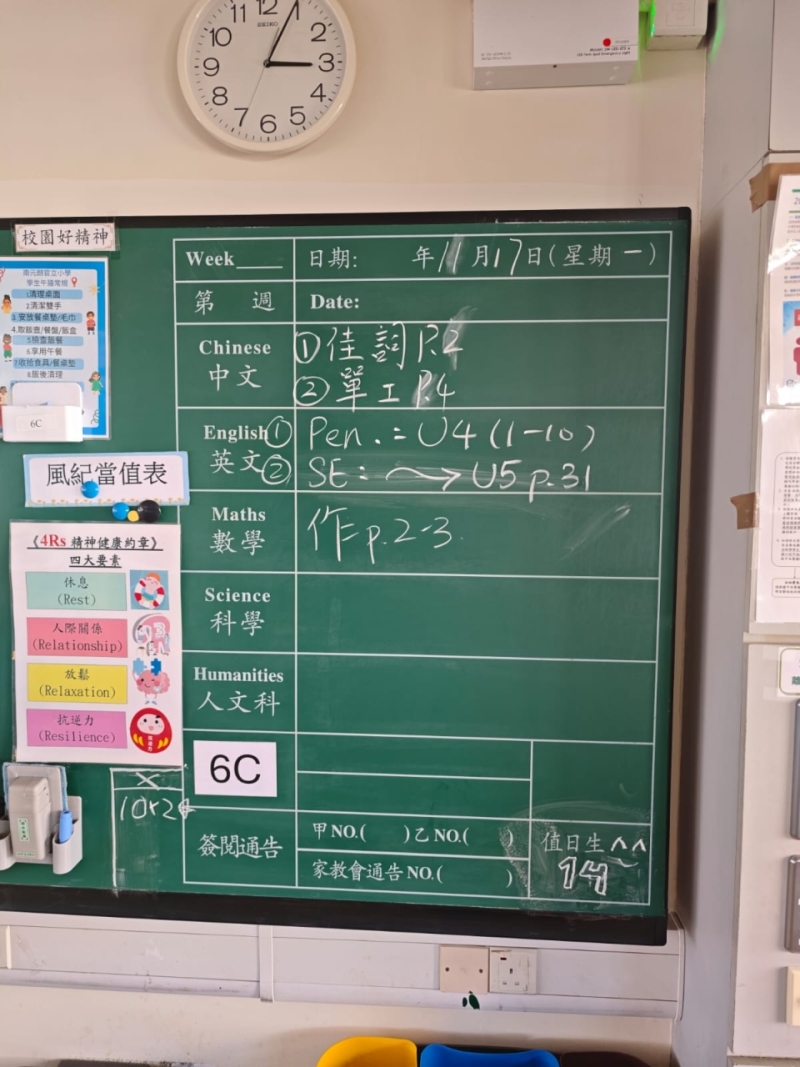 11 12 1 2 3 4 5 6 7 8 9 10
校園好精神
1清理桌面
2清潔雙手
3.安放餐桌墊/毛巾
4.取飯壺/餐盤/飯盒
5檢查飯餐
6.享用午餐
7收拾食具/餐桌墊
8飯後清理
6C
風紀當值表
《4Rs 精神健康約章》
四大要素
休息
(Rest)
人際關係
(Relationship)
放鬆
(Relaxation)
抗逆力
(Resilience)
Week____ 日期: 年11月17日(星期一)
第 週 Date:
Chinese 中文 ①佳詞 P.2
②單工 P.4
English 英文 ① Pen.: U4 (1-10)
② SE: → U5 p.31
Maths 數學 作 p.2-3.
Science 科學
Humanities 人文科
6C
簽閱通告 甲NO.( )乙NO.( )
家教會通告NO.( )
值日生
14